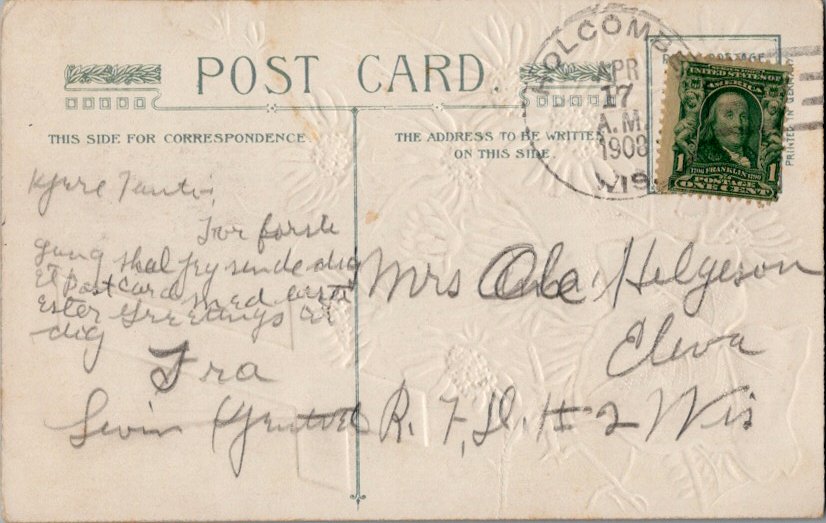 POST CARD.
THIS SIDE FOR CORRESPONDENCE.
THE ADDRESS TO BE WRITTEN
ON THIS SIDE.
HOLCOMBE
APR
17
A.M.
1908
WIS.
UNITED STATES OF
AMERICA
1 1706 FRANKLIN 1790 1
POSTAGE
ONE CENT
PRINTED IN GERMANY
Kjære Tante,
For förste
Gang skal jey sende dig
Et Postcard med
Ester Greetings til
dig
Fra
Mrs Ole Helgeson
Eleva
R. F. D. # 2 Wis